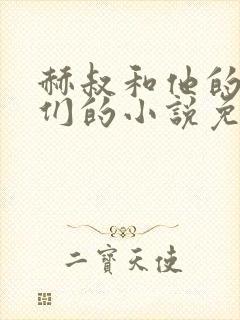 赫叔和他的
们的小説免
二寶天使